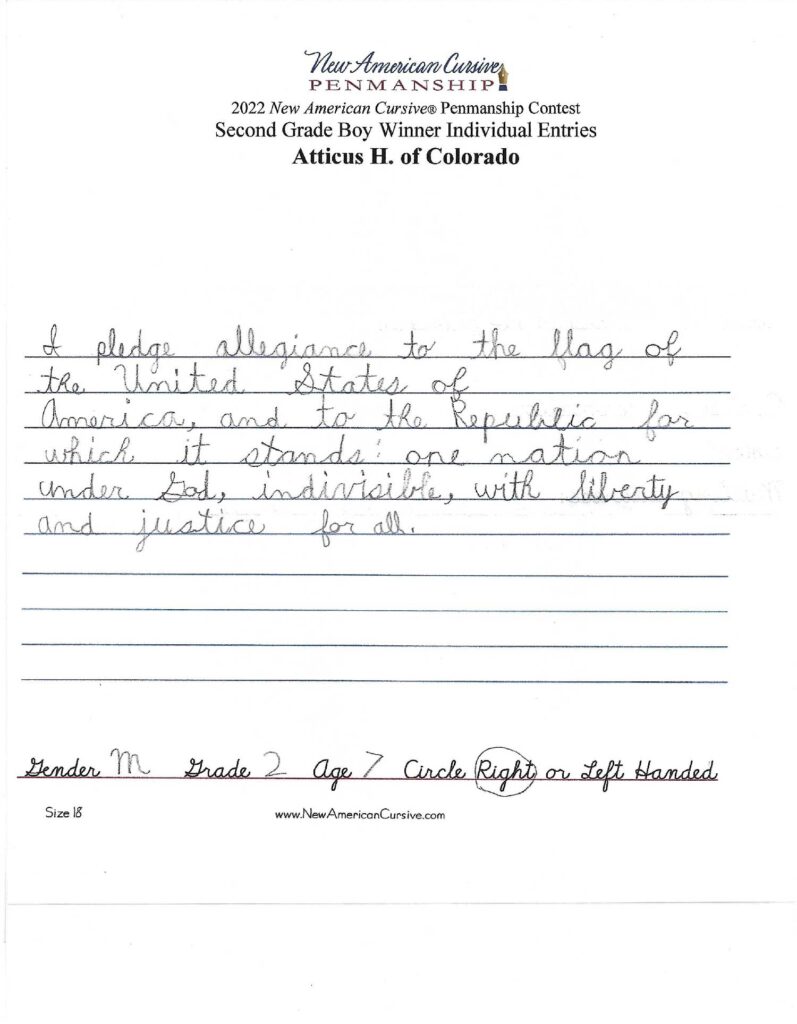 New American Cursive
PENMANSHIP
2022 New American Cursive® Penmanship Contest
Second Grade Boy Winner Individual Entries
Atticus H. of Colorado
I pledge allegiance to the flag of
the United States of
America, and to the Republic for
which it stands: one nation
under God, indivisible, with liberty
and justice for all.
Gender M Grade 2 Age 7 Circle Right or Left Handed
Size 18
www.NewAmericanCursive.com